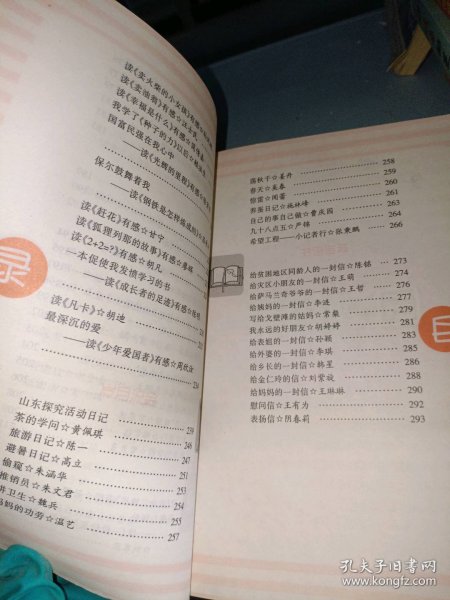 读《卖火柴的小女孩》有感☆
读《卖油翁》有感☆
读《幸福是什么》有感☆
我学了《种子的力》以后☆
国富民强在我心中
——读《光辉的里程》有感☆
保尔鼓舞着我
——读《钢铁是怎样炼成的》
读《赶花》有感☆甘宁
读《狐狸列那的故事》有感☆
读《2+2=?》有感☆胡凡
一本促使我发愤学习的书
——读《成长者的足迹》有感☆
读《凡卡》☆胡迪
最深沉的爱
——读《少年爱国者》有感☆周欣汝
山东探究活动日记 239
茶的学问☆黄佩琪 246
旅游日记☆陈一 247
避暑日记☆高立 251
偷窥☆朱涵华 253
推销员☆朱文君 254
讲卫生☆魏兵 255
妈妈的功劳☆温艺 257
荡秋千☆姜丹 258
春天☆吴春 259
惊雷☆闻蕾 260
养蚕日记☆施林峰 261
自己的事自己做☆曹庆园 263
九十八点五☆严锦 264
希望工程——小记者行☆张秉鹏 266
给贫困地区同龄人的一封信☆陈铭 273
给灾区小朋友的一封信☆王萌 274
给萨马兰奇爷爷的一封信☆王哲 276
给姨妈的一封信☆李涟 277
写给戈壁滩的姑妈☆常粲 279
我永远的好朋友☆胡婷婷 281
给表姐的一封信☆孙颖 283
给外婆的一封信☆李琪 285
给乡长的一封信☆韩星 286
给金仁玲的信☆刘紫旋 287
给妈妈的一封信☆王琳琳 290
慰问信☆王有为 292
表扬信☆阴春莉 293
录
目
孔夫子旧书网
www.kongfz.com